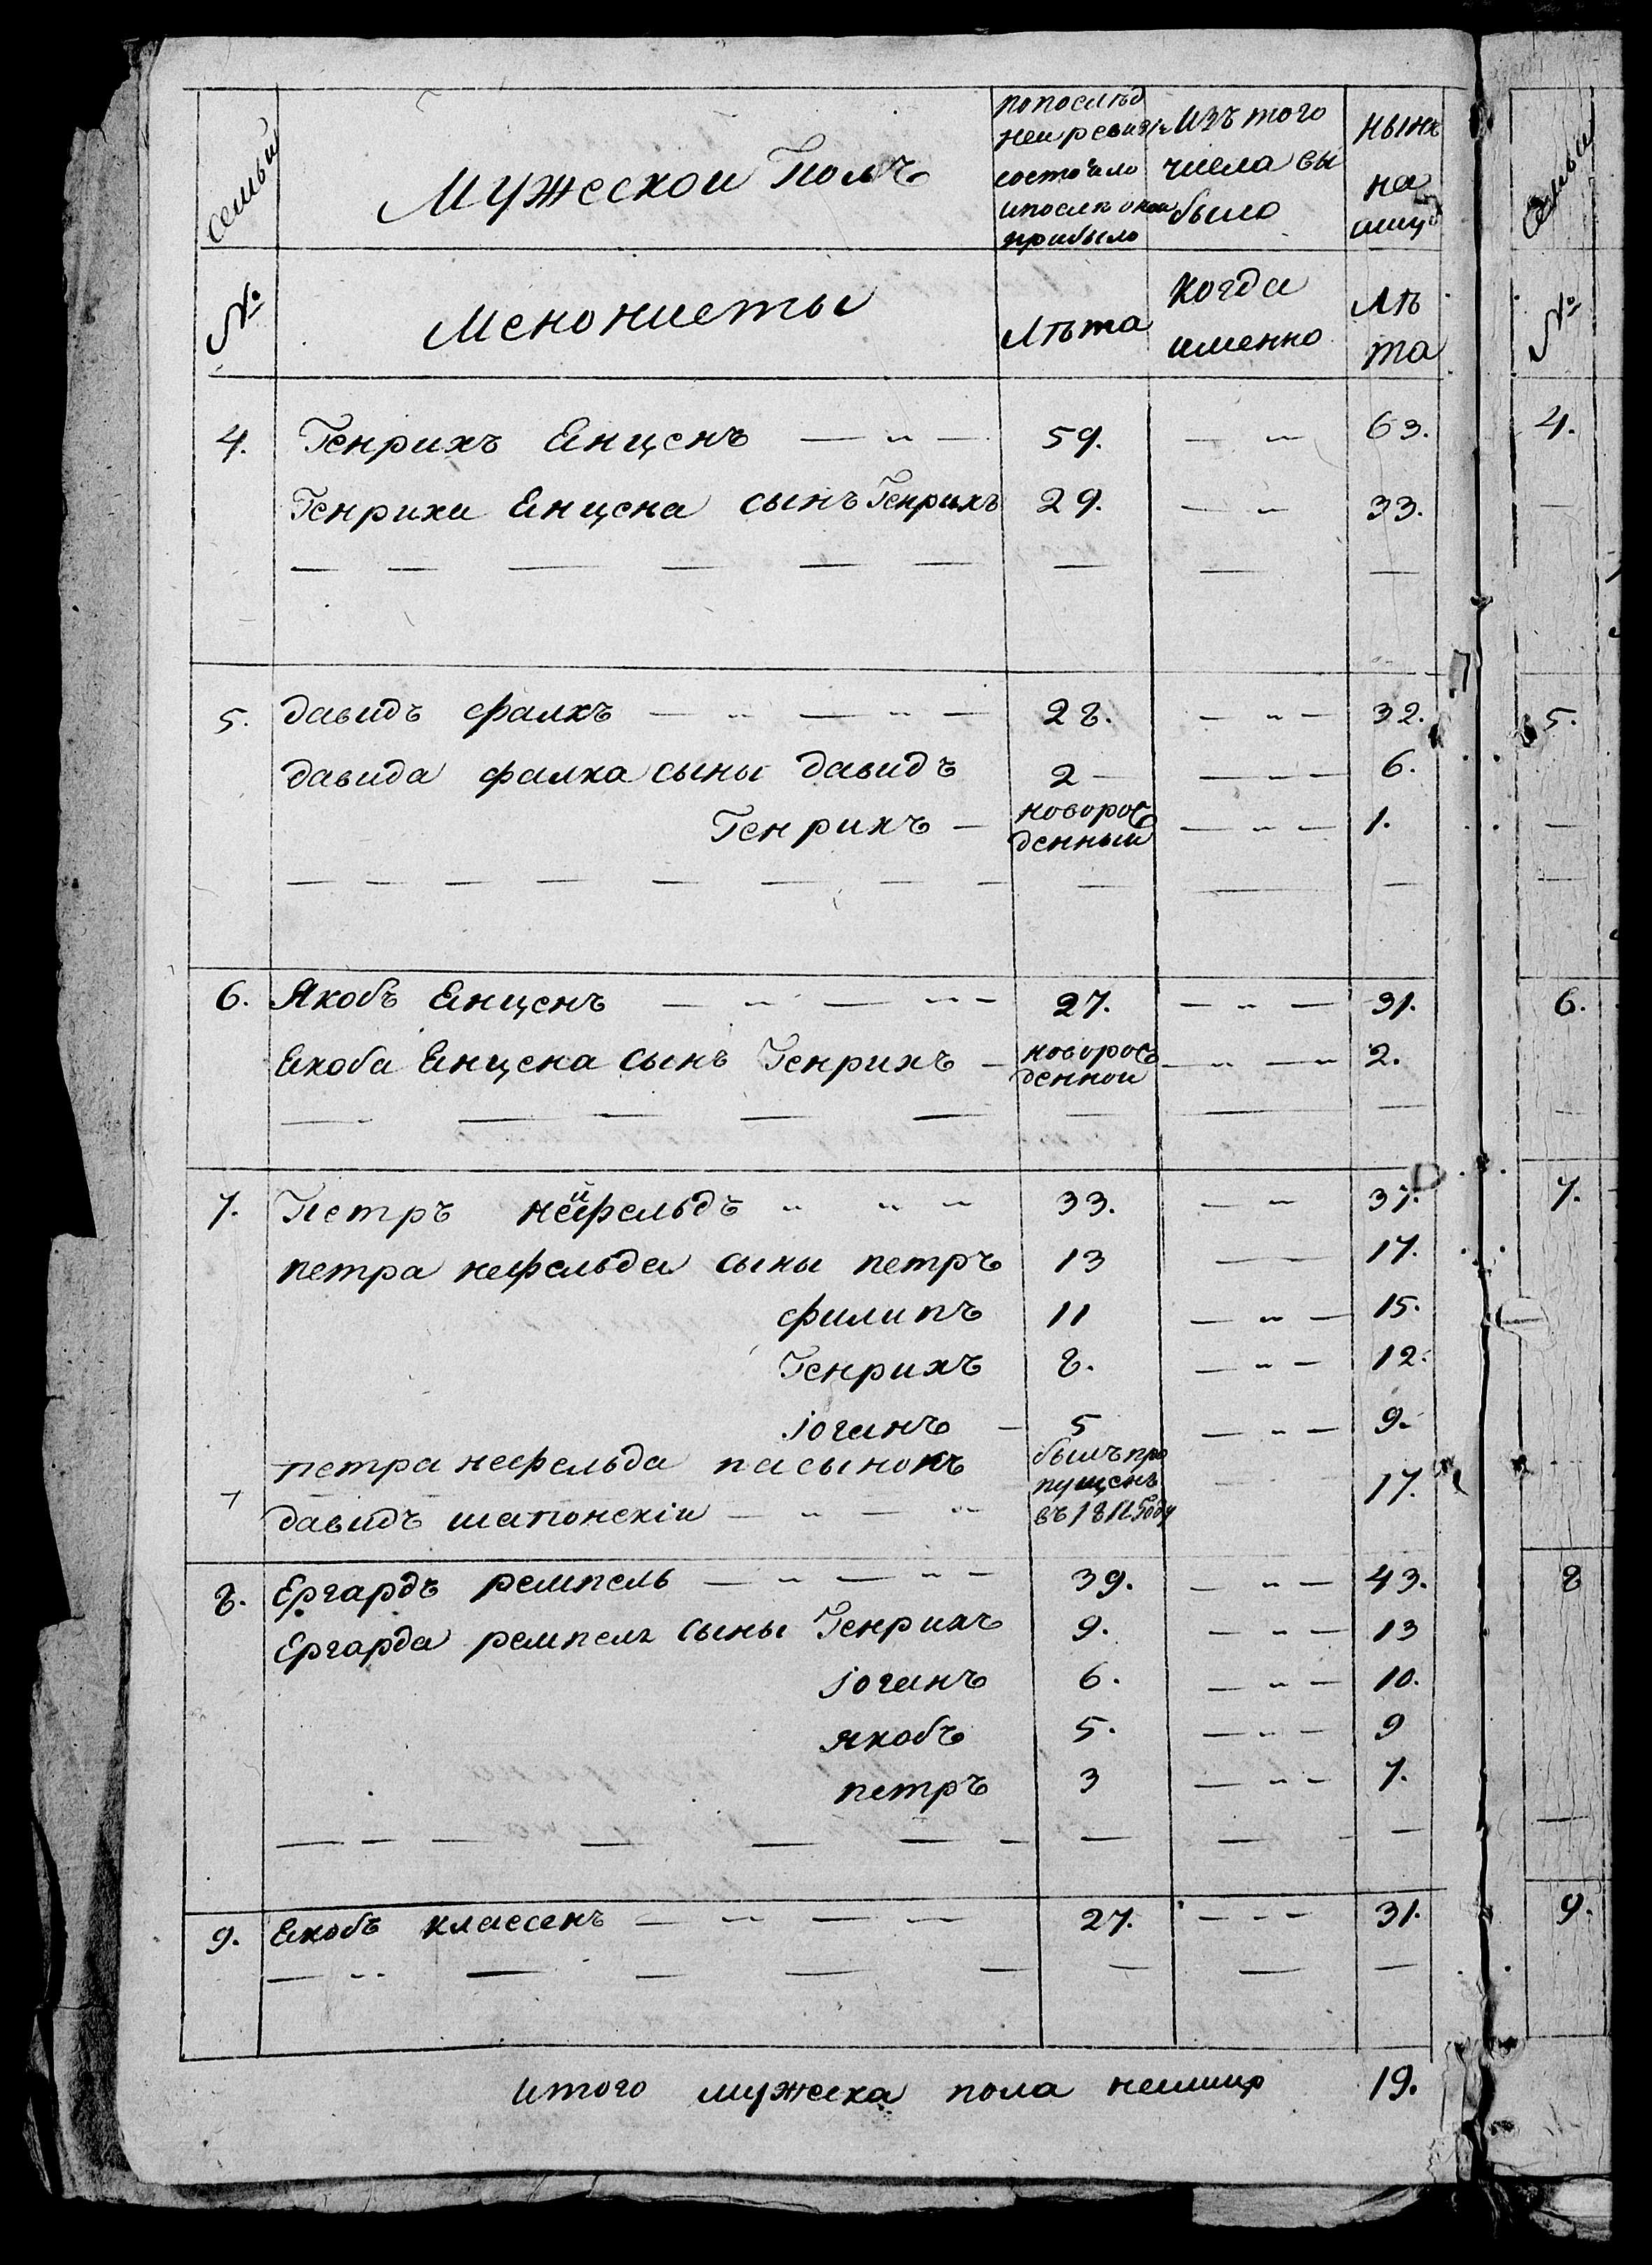 семьи
Мужескои Полъ
по послѣд
неи ревизiи
состояло
и послѣ онои
прибыло
Изъ того
числа вы
было
нынѣ
на
лицо
№
Менонисты
Лѣта
когда
именно
Лѣ
та
4. Генрихъ Енценъ — " — 59. — " 63.
Генриха Енцена сынъ Генрихъ 29. — " 33.
5. Давидъ фалкъ — " — " — 28. — " — 32.
Давида фалка сыны Давидъ 2 — — " — 6.
Генрихъ — новорож
денный — " — 1.
6. Якобъ Енценъ — " — " — 27. — " — 31.
Якоба Енцена сынъ Генрихъ — новорож
денной — " — " 2.
7. Петръ нейфельдъ " " " 33. — " 37.
петра нефельда сыны петръ 13 — 17.
филипъ 11 — " — 15.
Генрихъ 8. — " — 12.
іоганъ — 5 — " — 9.
петра нефельда пасынокъ
былъ про
пущенъ
въ 1811 Году
17.
давидъ шапонскіи — " — "
8. Ергардъ ремпель — " — " — 39. — " — 43.
Ергарда ремпеля сыны Генрихъ 9. — " — 13
іоганъ 6. — " — 10.
якобъ 5. — " — 9
петръ 3 — " — 7.
9. Якобъ классенъ — " — — 27. — " — 31.
итого мужеска пола налицо 19.
семьи
№
4.
5.
6.
7.
8
9.